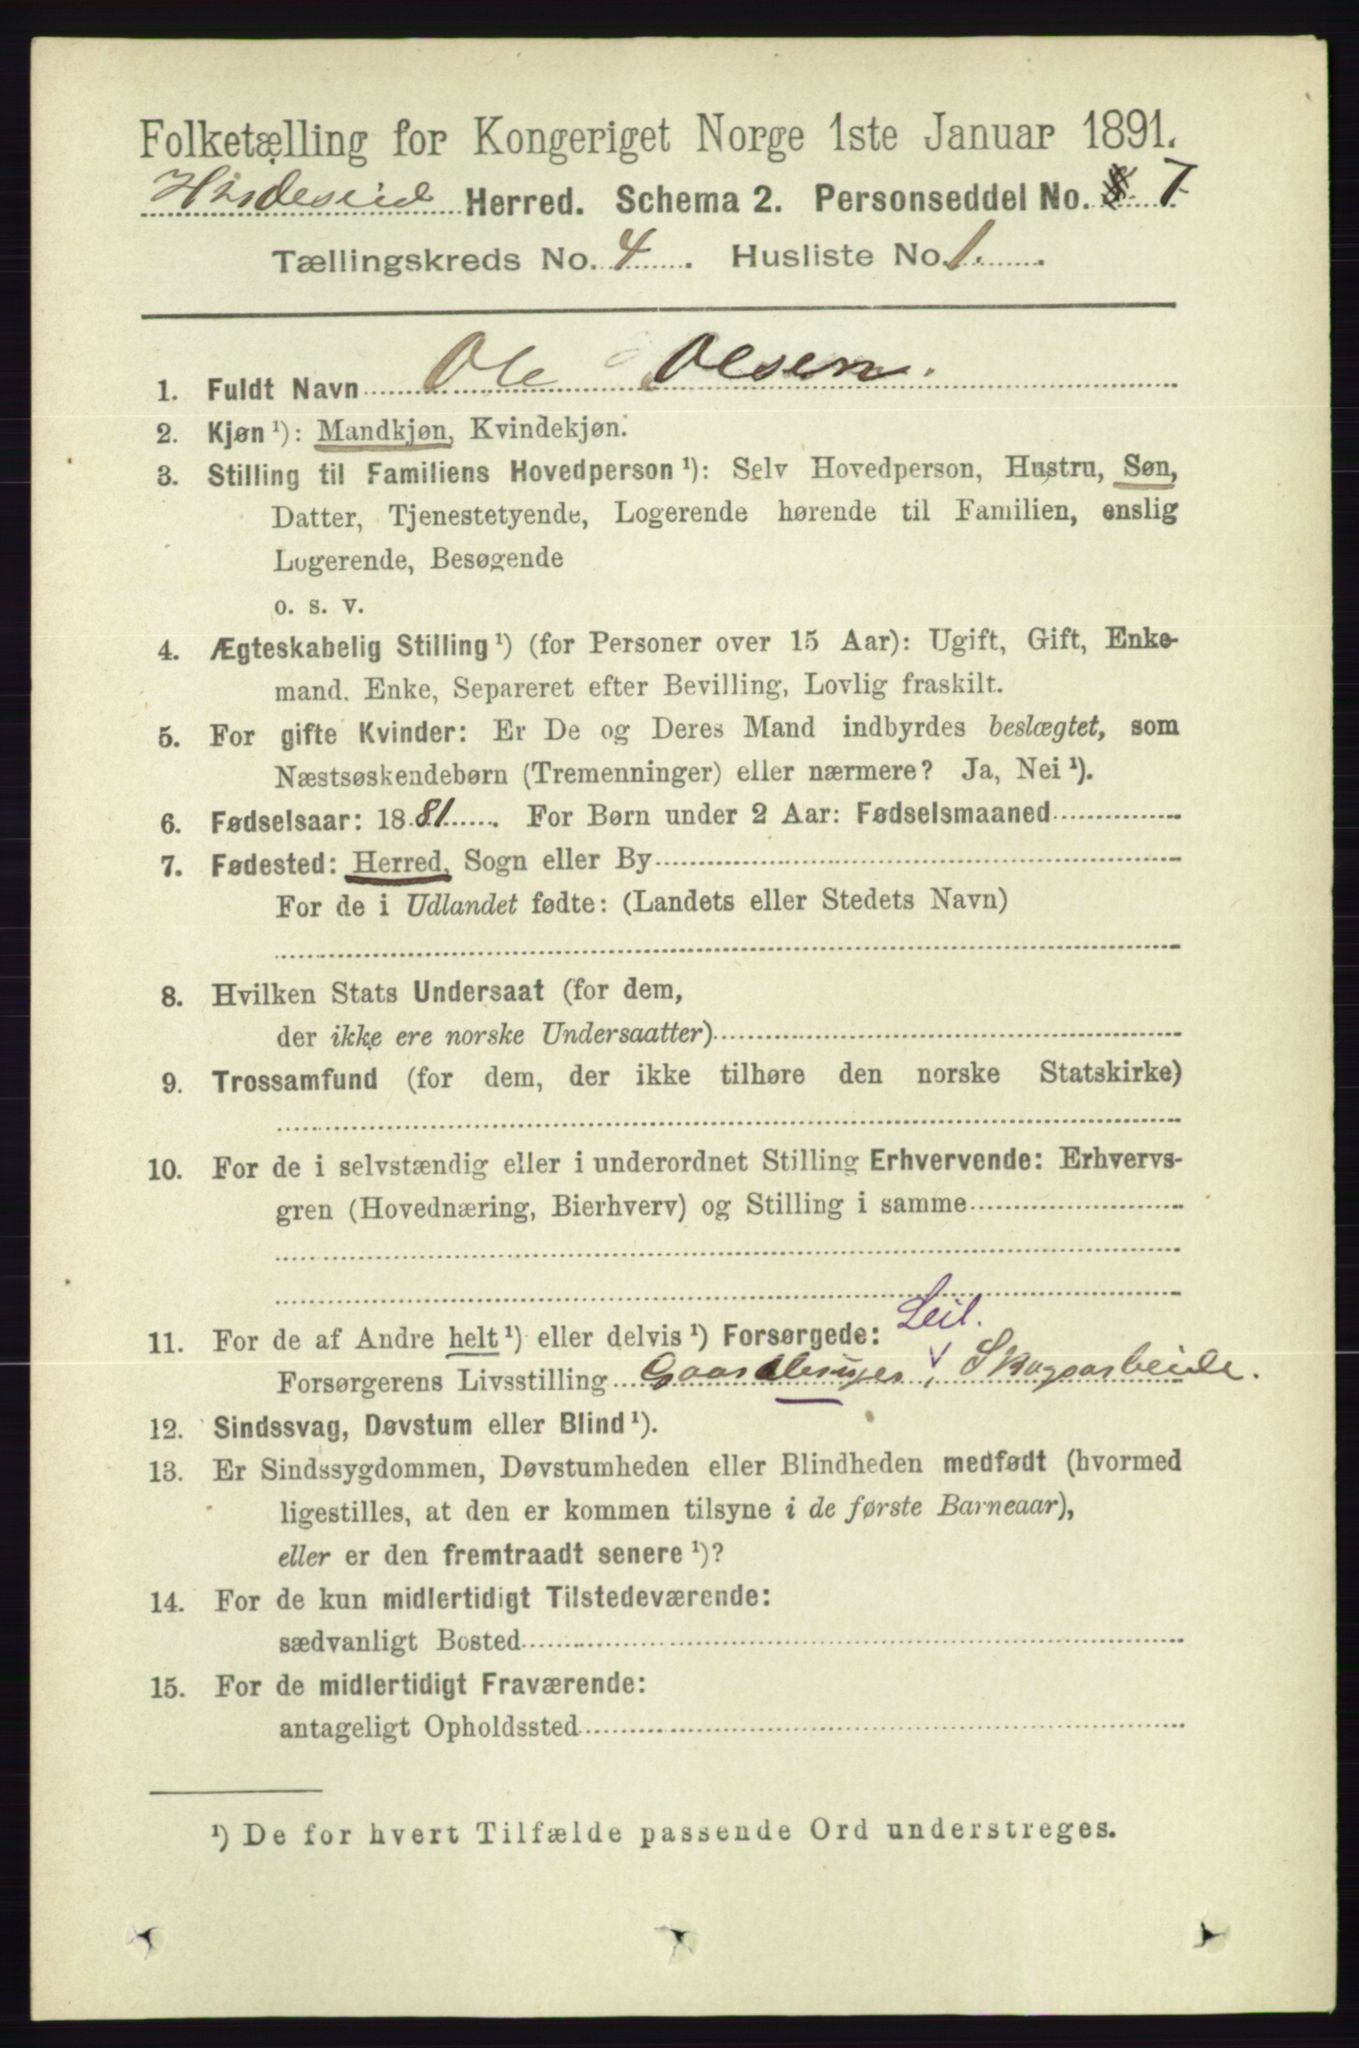 Folketælling for Kongeriget Norge 1ste Januar 1891.
Hvideseid Herred. Schema 2. Personseddel No. 7
Tællingskreds No. 4. Husliste No. 1.
1. Fuldt Navn Ole Olsen.
2. Kjøn ¹): Mandkjøn, Kvindekjøn.
3. Stilling til Familiens Hovedperson ¹): Selv Hovedperson, Hustru, Søn,
Datter, Tjenestetyende, Logerende hørende til Familien, enslig
Logerende, Besøgende
o. s. v.
4. Ægteskabelig Stilling ¹) (for Personer over 15 Aar): Ugift, Gift, Enke-
mand. Enke, Separeret efter Bevilling, Lovlig fraskilt.
5. For gifte Kvinder: Er De og Deres Mand indbyrdes beslægtet, som
Næstsøskendebørn (Tremenninger) eller nærmere? Ja, Nei ¹).
6. Fødselsaar: 1881. For Børn under 2 Aar: Fødselsmaaned
7. Fødested: Herred, Sogn eller By
For de i Udlandet fødte: (Landets eller Stedets Navn)
8. Hvilken Stats Undersaat (for dem,
der ikke ere norske Undersaatter)
9. Trossamfund (for dem, der ikke tilhøre den norske Statskirke)
10. For de i selvstændig eller i underordnet Stilling Erhvervende: Erhvervs-
gren (Hovednæring, Bierhverv) og Stilling i samme
Leil.
11. For de af Andre helt ¹) eller delvis ¹) Forsørgede:
Forsørgerens Livsstilling Gaardbruger, Skogsarbeide.
12. Sindssvag, Døvstum eller Blind ¹).
13. Er Sindssygdommen, Døvstumheden eller Blindheden medfødt (hvormed
ligestilles, at den er kommen tilsyne i de første Barneaar),
eller er den fremtraadt senere ¹)?
14. For de kun midlertidigt Tilstedeværende:
sædvanligt Bosted
15. For de midlertidigt Fraværende:
antageligt Opholdssted
¹) De for hvert Tilfælde passende Ord understreges.